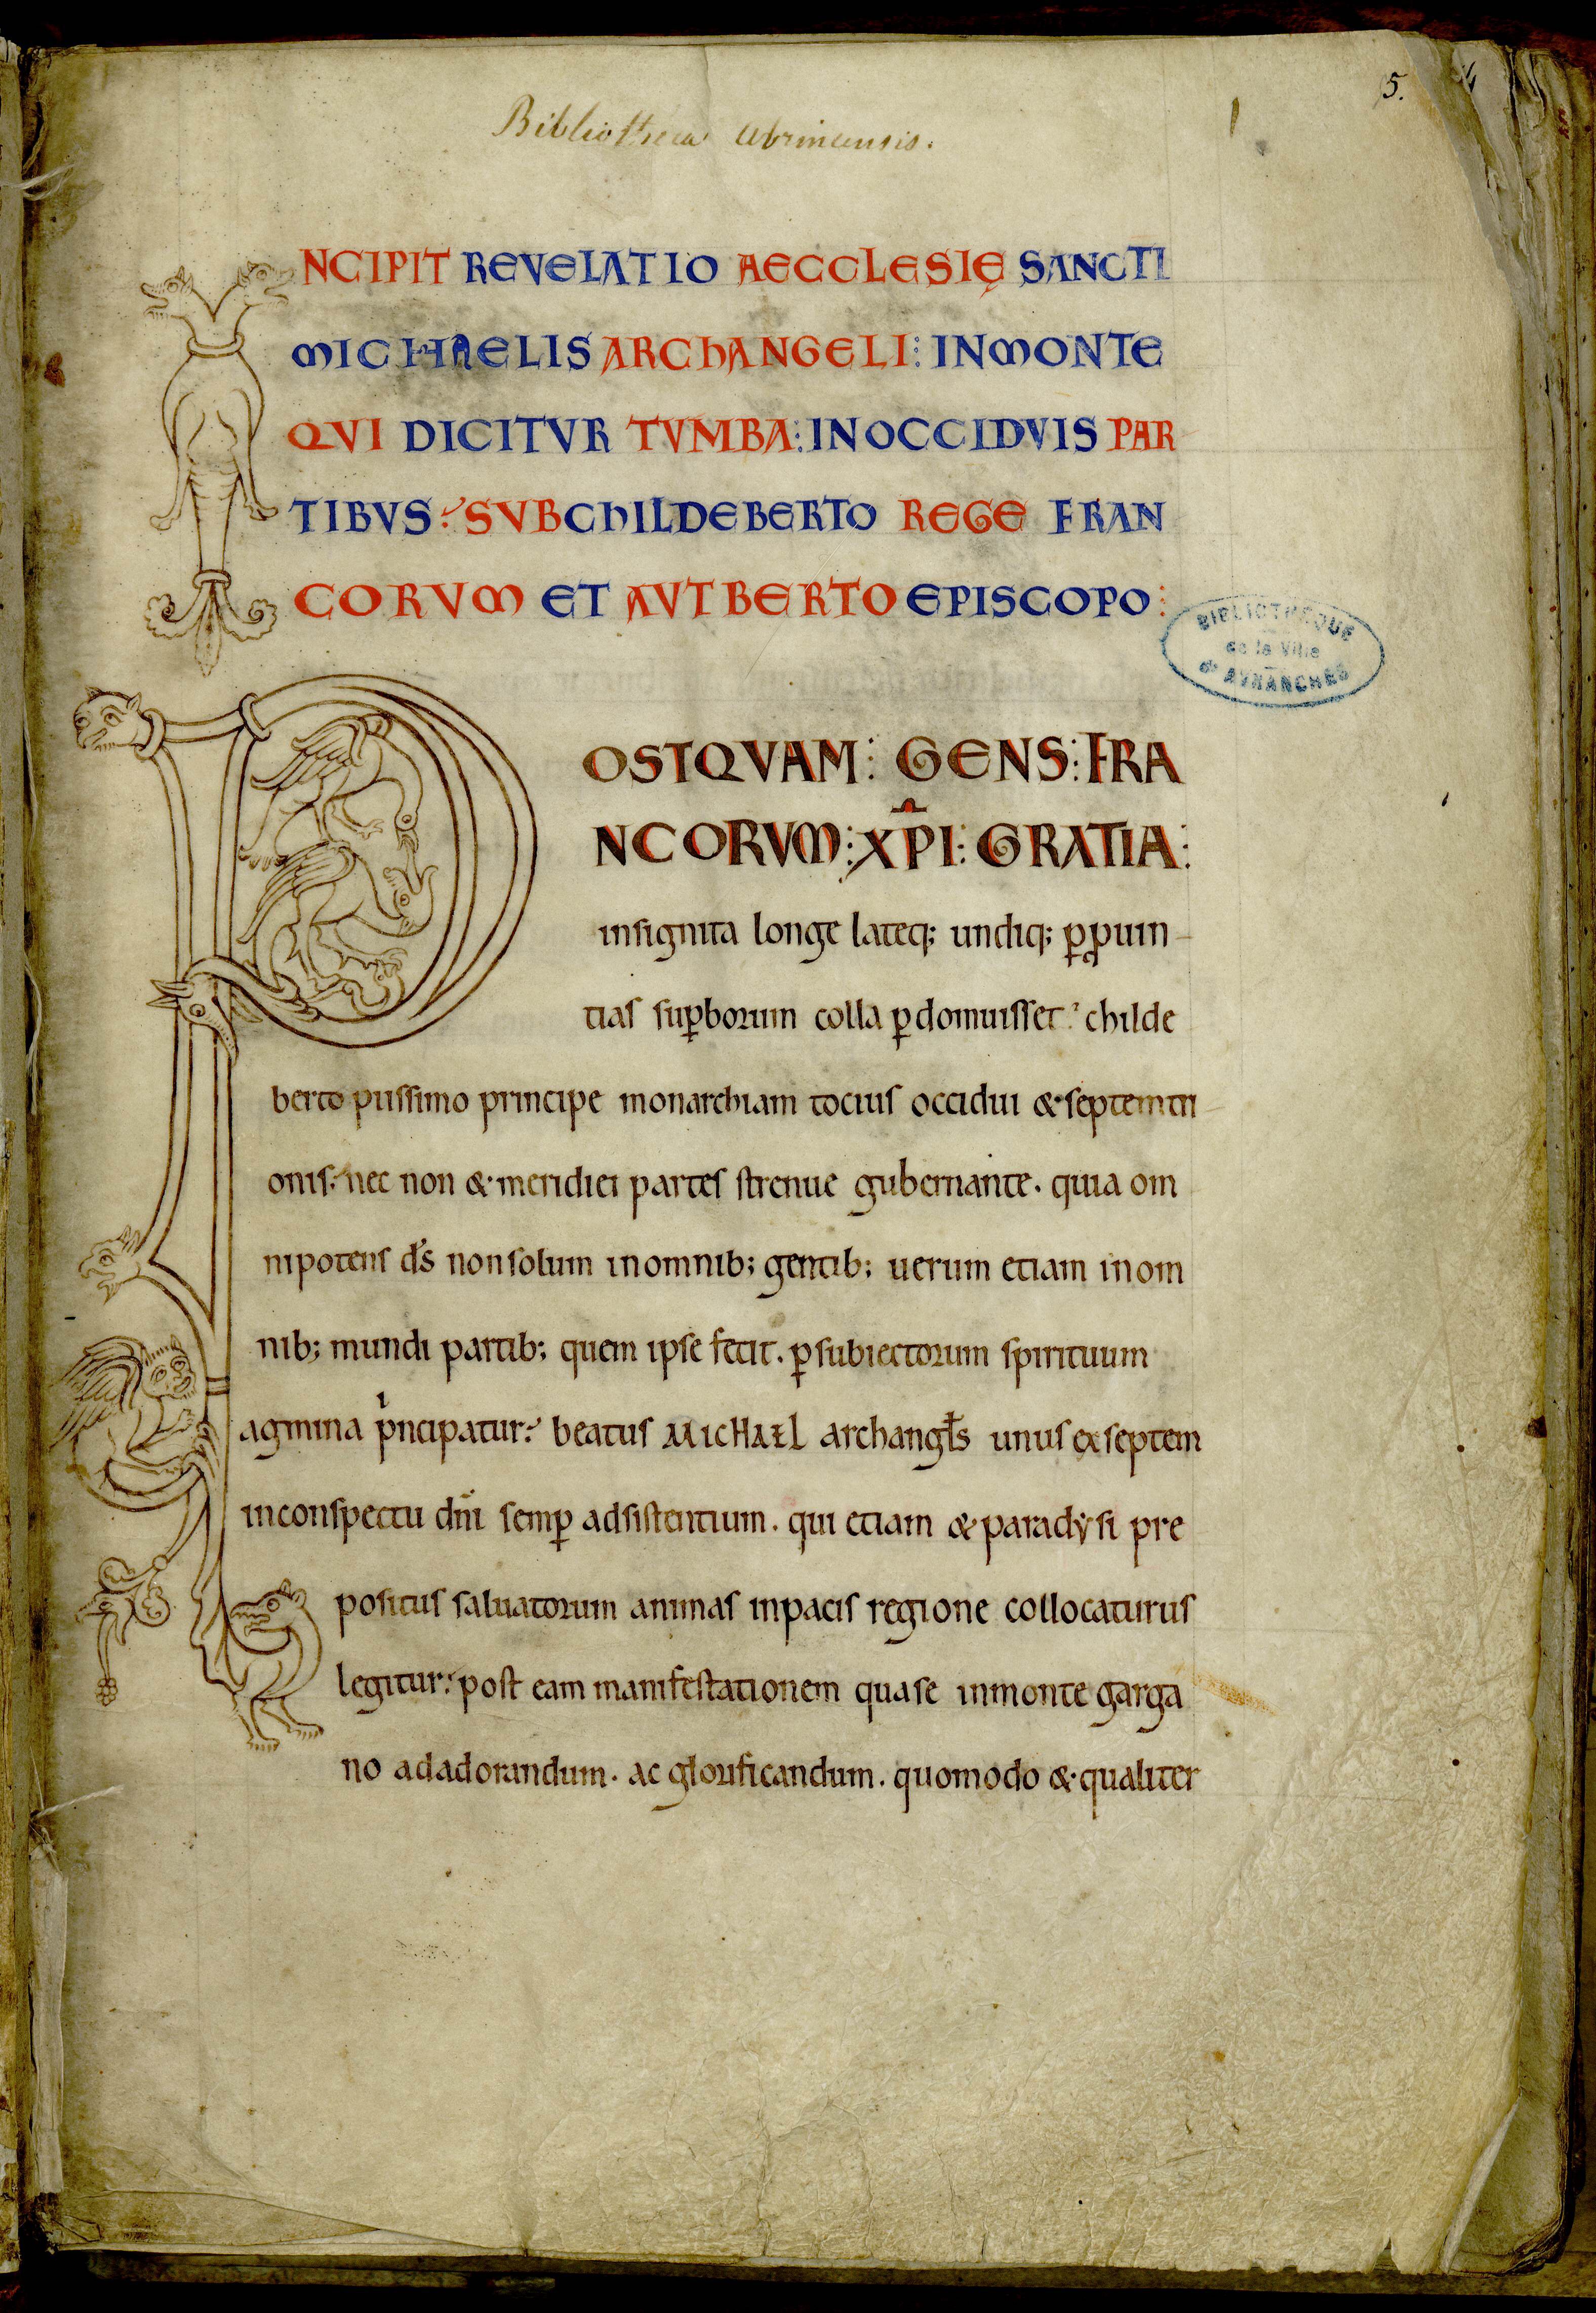 5.
Bibliotheca Abrincensis.
INCIPIT REVELATIO AECCLESIĘ SANCTI
MICHAELIS ARCHANGELI: IN MONTE
QVI DICITVR TVMBA: IN OCCIDVIS PAR
TIBVS: SVB CHILDEBERTO REGE FRAN
CORVM ET AVTBERTO EPISCOPO:
BIBLIOTHÈQUE
de la Ville
d'AVRANCHES
POSTQVAM: GENS: FRA
NCORVM: XP̄I: GRATIA:
insignita longe lateq; undiq; ꝑ ꝓuin-
tias suꝑborum colla ꝑdomuisset: childe
berto piissimo principe monarchiam tocius occidui & septemtri-
onis: nec non & meridiei partes strenue gubernante. quia om
nipotens d̄s non solum in omnib; gentib; uerum etiam in om
nib; mundi partib; quem ipse fecit. ꝑ subiectorum spirituum
agmina pͥncipatur: beatus MICHAEL archangł̄s unus ex septem
in conspectu dn̄i semꝑ adsistentium. qui etiam & paradẏsi pre
positus saluatorum animas in pacis regione collocaturus
legitur: post eam manifestationem qua se in monte garga
no ad adorandum. ac glorificandum. quomodo & qualiter